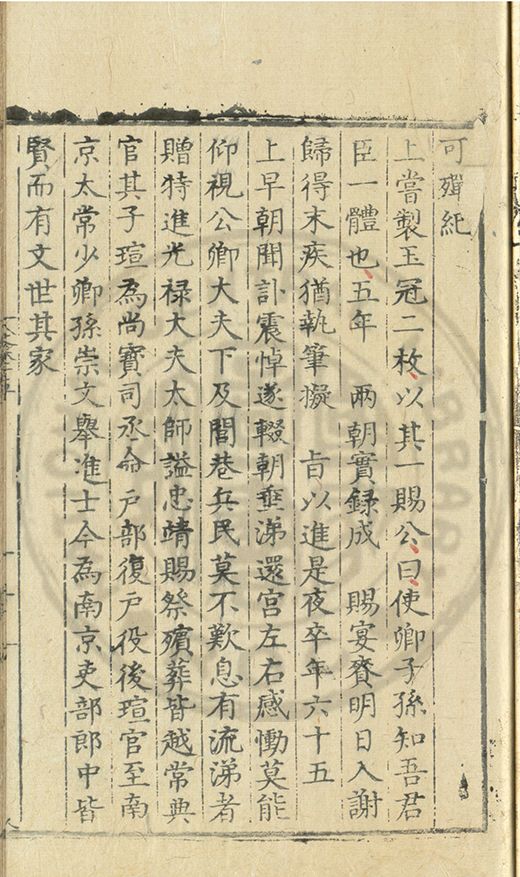 可殫紀
上嘗製玉冠二枚以其一賜公曰使卿子孫知吾君
臣一體也五年 兩朝實録成 賜宴賚明日入謝
歸得末疾猶執筆擬 旨以進是夜卒年六十五
上早朝聞訃震悼遂輟朝垂涕還宮左右感慟莫能
仰視公卿大夫下及閭巷兵民莫不歎息有流涕者
贈特進光禄大夫太師謚忠靖賜祭殯葬皆越常典
官其子瑄為尚寶司丞命戸部復戸役後瑄官至南
京太常少卿孫崇文舉進士今為南京吏部郎中皆
賢而有文世其家